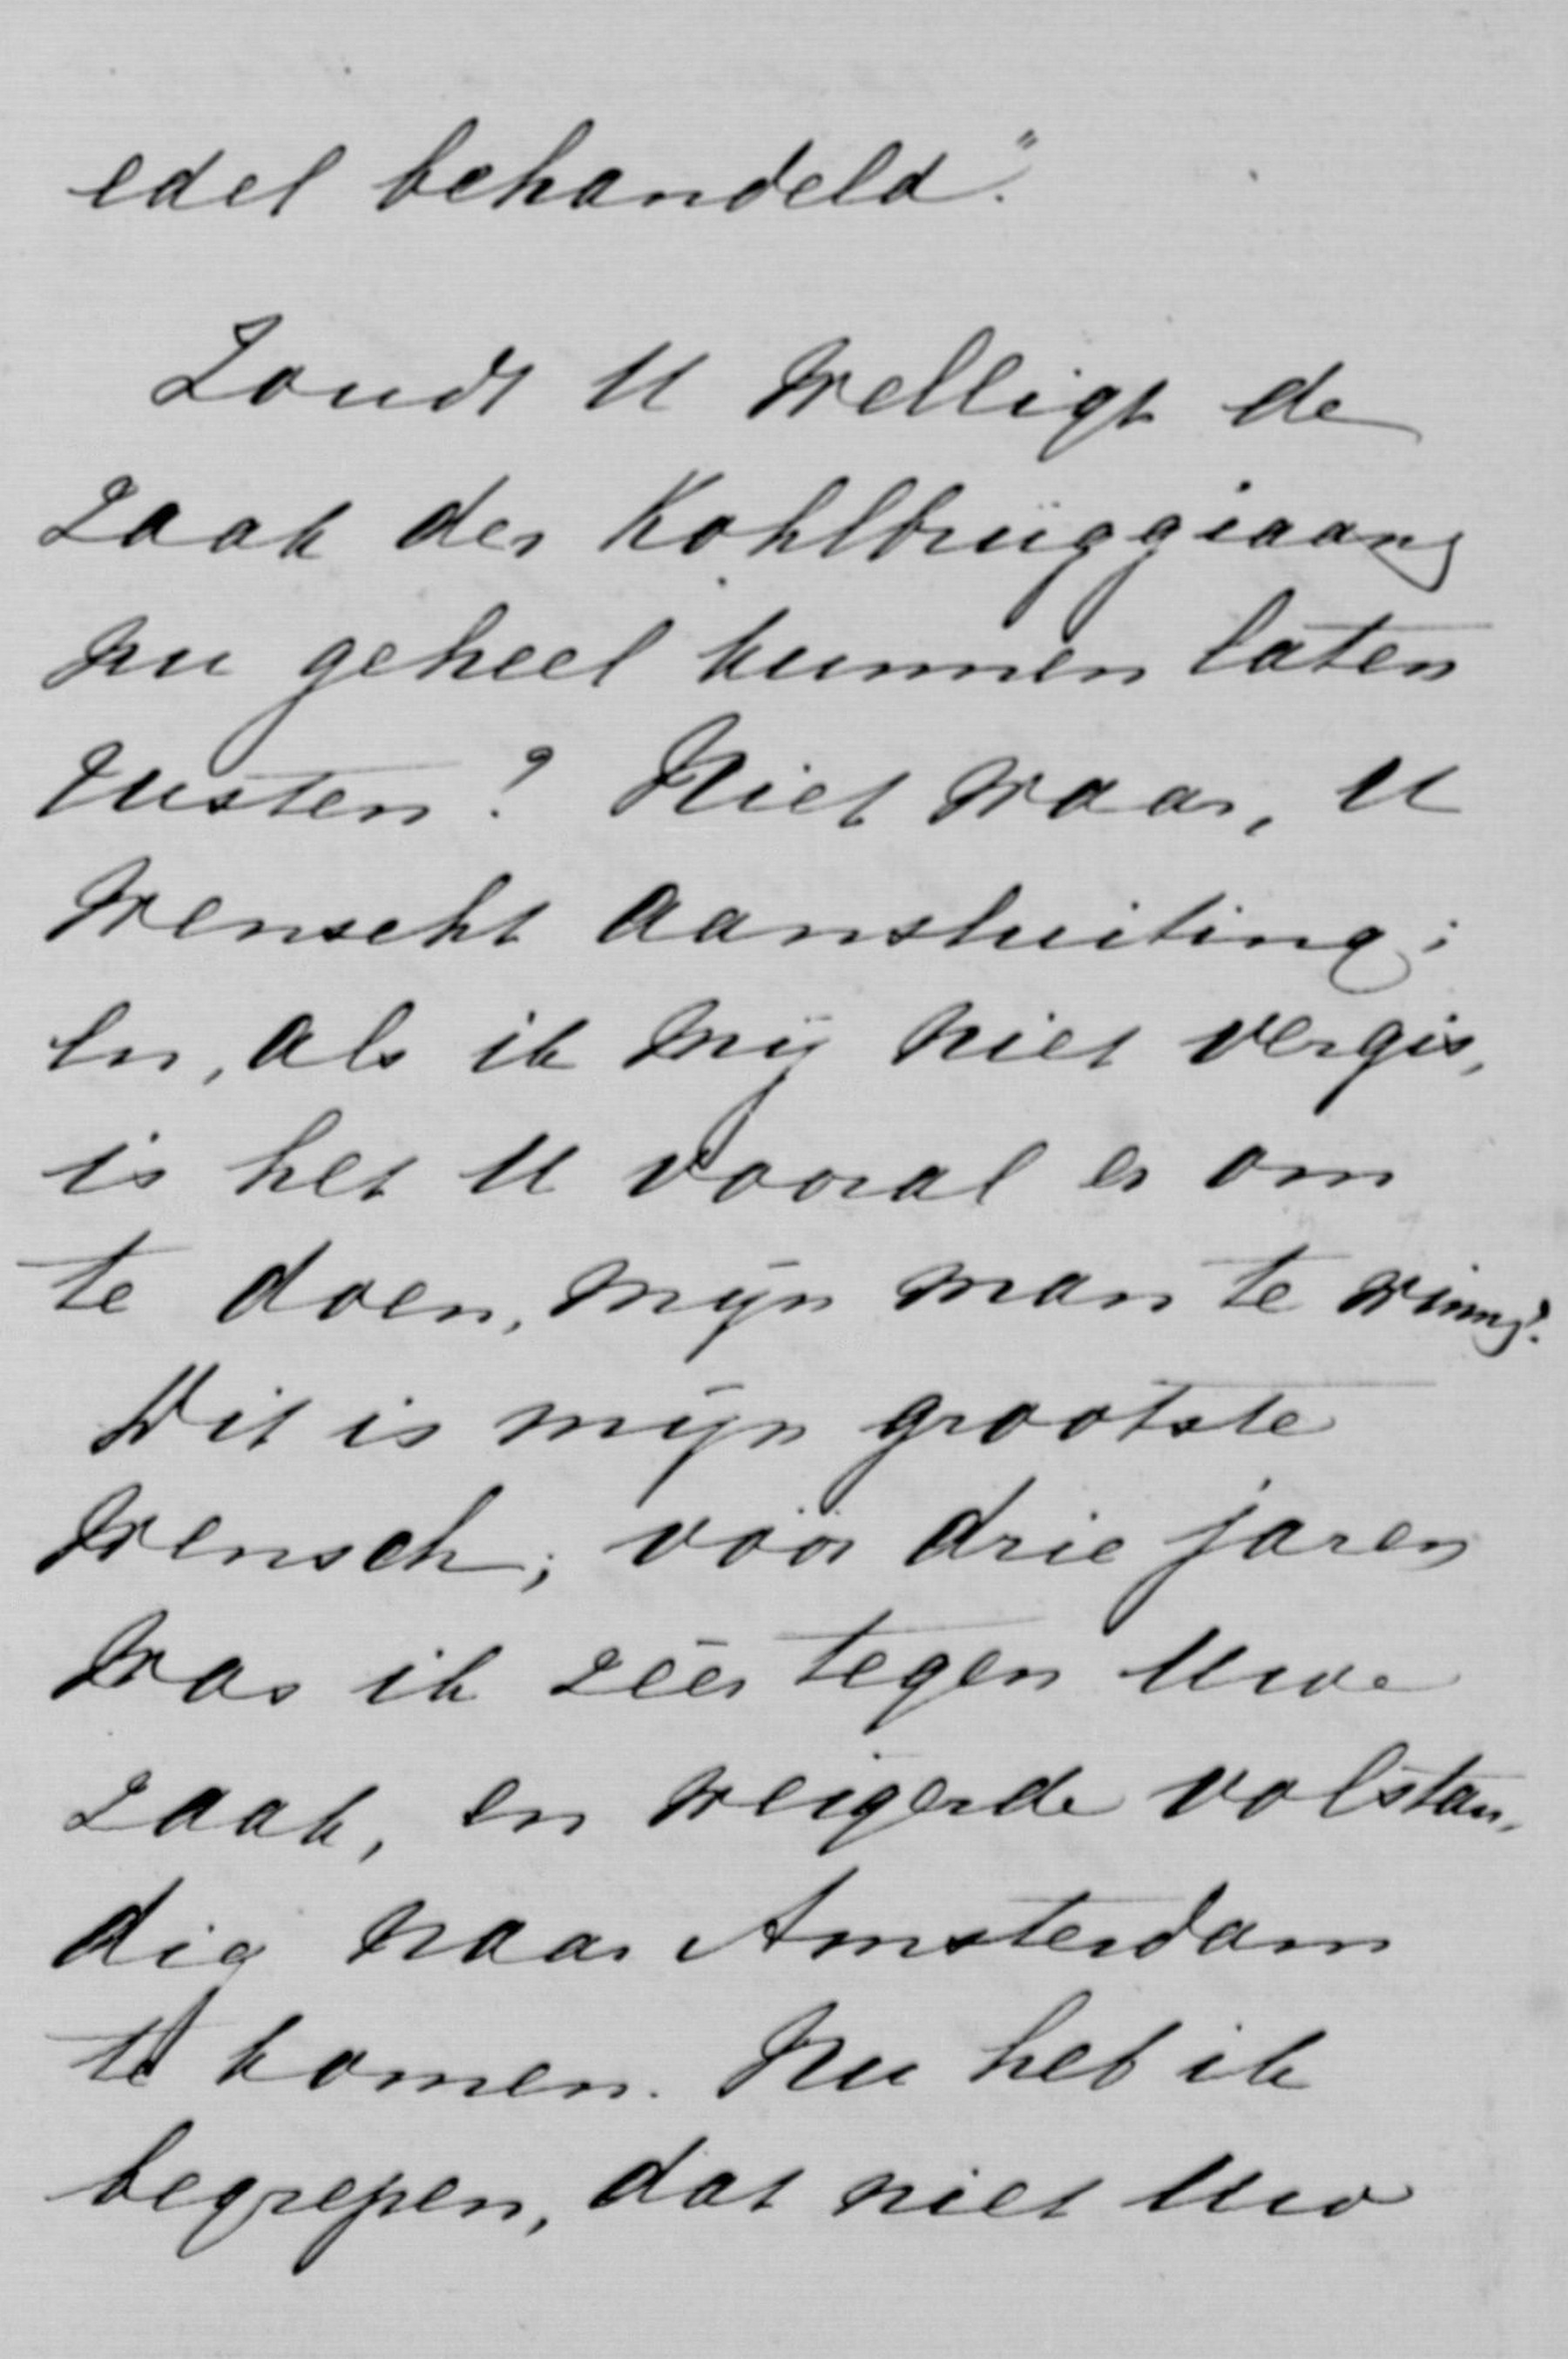 edel behandeld."
Zoudt U welligt de
zaak der Kohlbrüggiaans
nu geheel kunnen laten
rusten? Niet waar, U
wenscht aansluiting;
en, als ik mij niet vergis,
is het U vooral er om
te doen, mijn man te winnen?
Dit is mijn grootste
wensch; vóór drie jaren
was ik zéér tegen Uwe
zaak, en weigerde volstan-
dig naar Amsterdam
te komen. Nu heb ik
begrepen, dat niet Uw